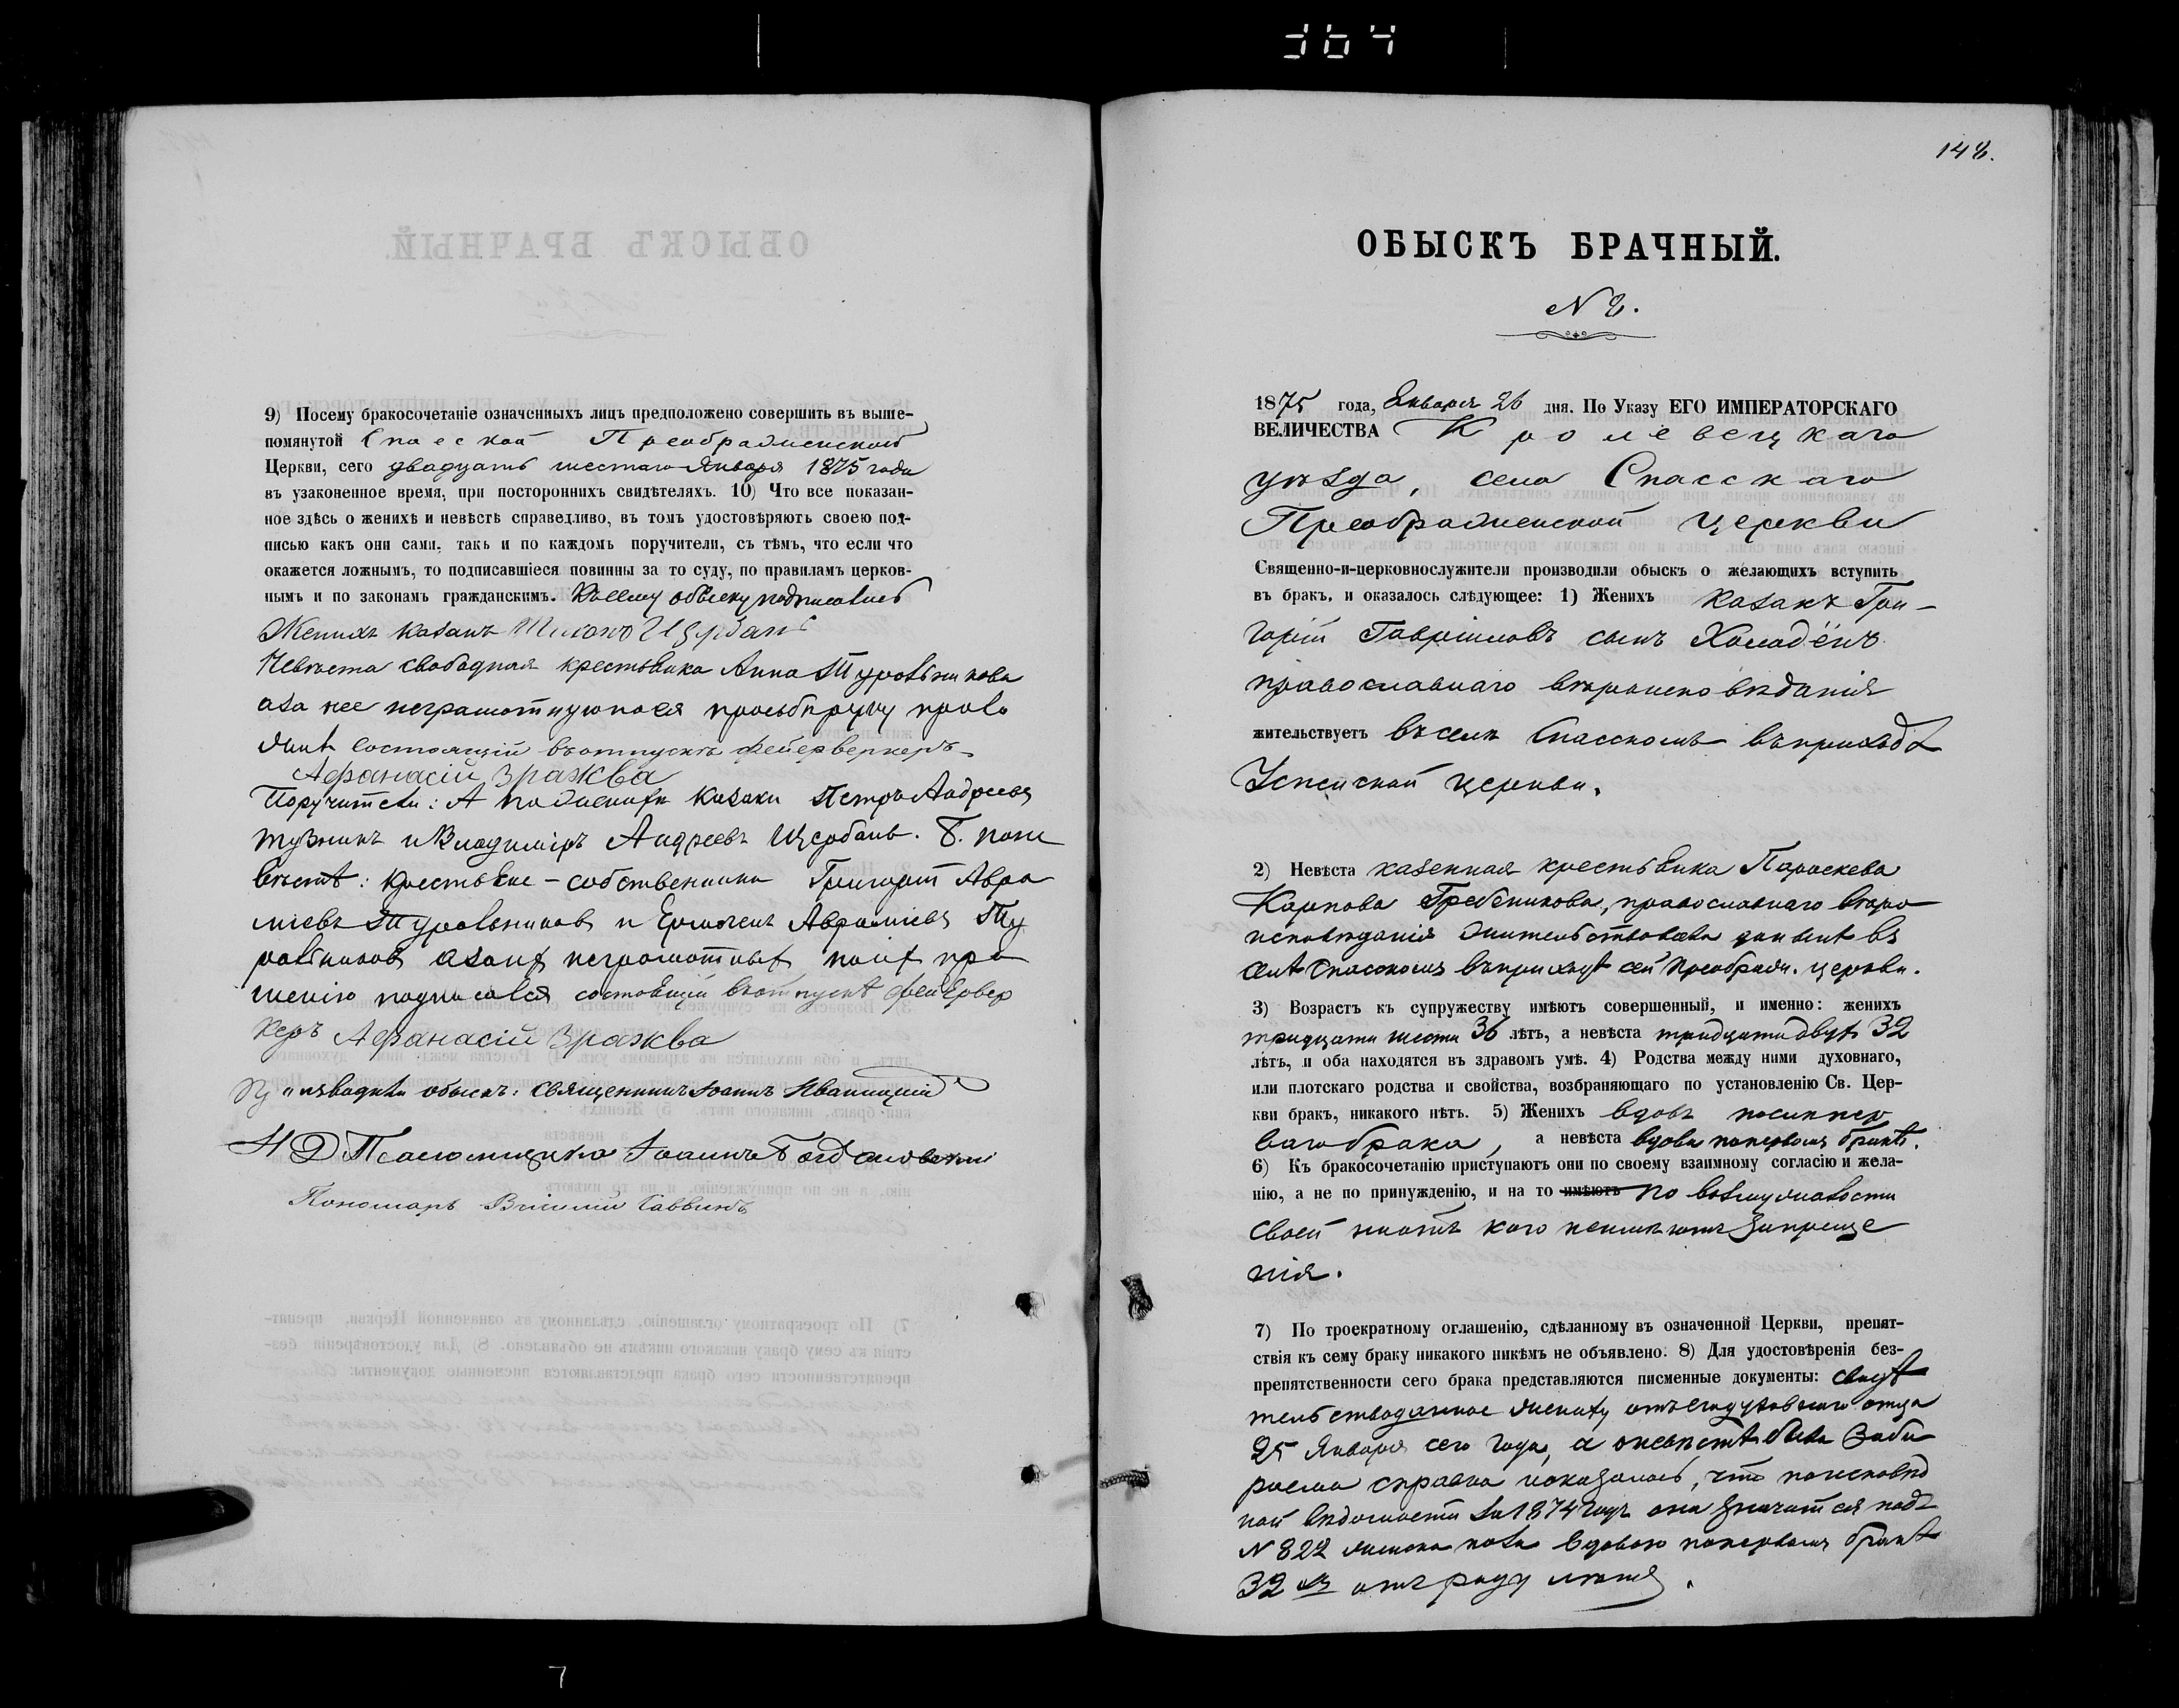 364
9) Посему бракосочетаніе означенныхъ лицъ предположено совершить въ выше-
помянутой Спасской Преображенской
Церкви, сего двадцать шестаго Января 1875 года
въ узаконенное время, при постороннихъ свидѣтеляхъ. 10) Что все показан-
ное здѣсь о женихѣ и невѣстѣ справедливо, въ томъ удостовѣряютъ своею под-
писью какъ они сами, такъ и по каждомъ поручители, съ тѣмъ, что если что
окажется ложнымъ, то подписавшіеся повинны за то суду, по правиламъ церков-
нымъ и по законамъ гражданскимъ. Къ сему обыску подписались
Женихъ казакъ Щербань
Невѣста свободная крестьянка Анна
а за нее неграмотную по ея
состоящій въ отпускѣ фейерверкеръ
Афанасій Зражва
Поручители: А по женихѣ казаки Петръ Андреевъ
и Владиміръ Андреевъ Щербань. Б. по не
вѣстѣ: крестьяне-собственники Григорій Авра
міевъ и Авраміевъ
а за нихъ неграмотныхъ по ихъ про
шенію подписался состоящій въ отпускѣ фейервер
керъ Афанасій Зражва
Производили обыскъ: священникъ Іоаннъ Иваницкій
И Д Псаломщика Іоаннъ Богдановскій
Пономарь Василій Саввинъ
7
148.
ОБЫСКЪ БРАЧНЫЙ.
N 8.
1875 года, Января 26 дня. По Указу ЕГО ИМПЕРАТОРСКАГО
ВЕЛИЧЕСТВА Кролевецкаго
уѣзда, села Спасскаго
Преображенской церкви
Священно-и-церковнослужители производили обыскъ о желающихъ вступить
въ бракъ, и оказалось слѣдующее: 1) Женихъ казакъ Гри-
горій Гавріиловъ сынъ Холадёнъ
православнаго вѣроисповѣданія
жительствуетъ въ селѣ Спасскомъ въ приходѣ
Успенской церкви.
2) Невѣста казенная крестьянка Параскева
Карпова Гребеникова, православнаго вѣро
исповѣданія жительствовала донынѣ въ
селѣ Спасскомъ въ приходѣ сей Преображ. церкви.
3) Возрастъ къ супружеству имѣютъ совершенный, и именно: женихъ
тридцати шести 36 лѣтъ, а невѣста тридцати двухъ 32
лѣтъ, и оба находятся въ здравомъ умѣ. 4) Родства между ними духовнаго,
или плотскаго родства и свойства, возбраняющаго по установленію Св. Цер-
кви бракъ, никакого нѣтъ. 5) Женихъ вдовъ послѣ пер
ваго брака, а невѣста вдова по первомъ бракѣ.
6) Къ бракосочетанію приступаютъ они по своему взаимному согласію и жела-
нію, а не по принужденію, и на то имѣютъ по возмужалости
своей ни отъ кого не имѣютъ запреще
нія.
7) По троекратному оглашенію, сдѣланному въ означенной Церкви, препят-
ствія къ сему браку никакого никѣмъ не объявлено. 8) Для удостовѣренія без-
препятственности сего брака представляются писменные документы: свидѣ
тельство данное жениху отъ его духовнаго отца
25 Января сего года, а о невѣстѣ была заби
раема справка и оказалось, что по исповѣд
ной вѣдомости за 1874 годъ она значится подъ
N 822 женска пола вдовою по первомъ бракѣ
32 хъ отъ роду лѣтъ.